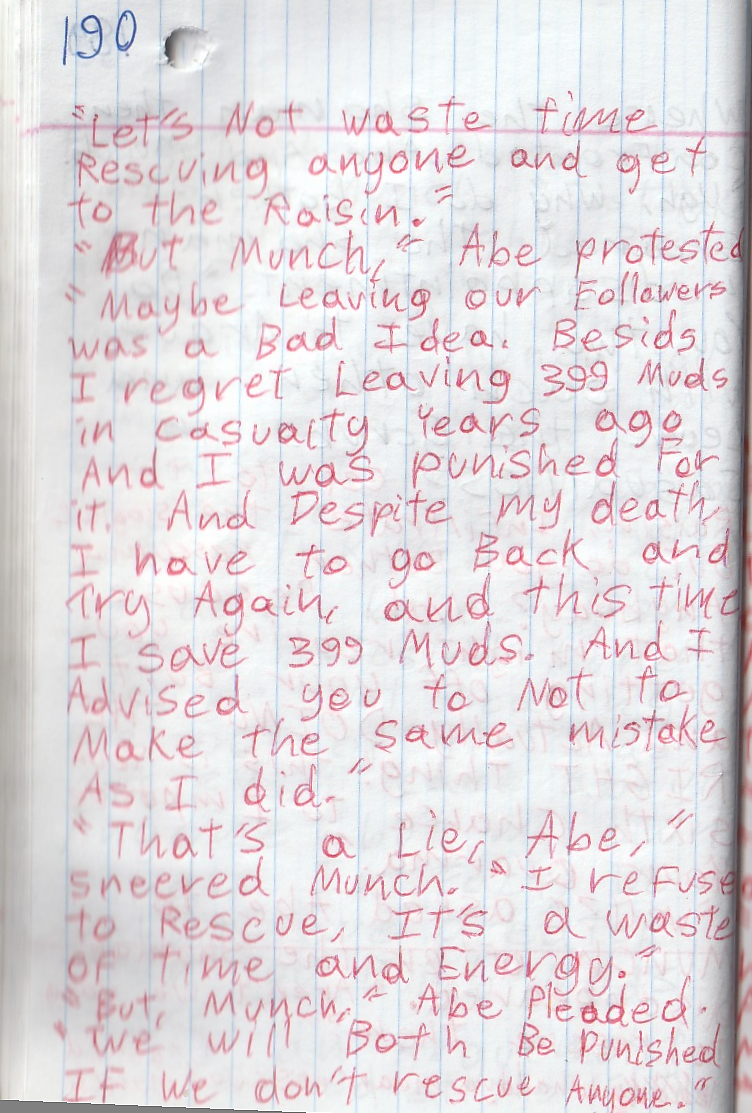 190
"Let's Not waste time
Rescuing anyone and get
to the Raisin."
"But Munch," Abe protested
"Maybe Leaving our Followers
was a Bad Idea. Besids
I regret Leaving 399 Muds
in Casualty Years ago
And I was punished For
it. And Despite my death,
I have to go Back and
Try Again, and this time
I save 399 Muds. And I
Advised you to Not to
Make the same mistake
As I did."
"That's a Lie, Abe,"
sneered Munch. "I refuse
to Rescue, It's a waste
of time and Energy."
"But, Munch," Abe Pleaded.
"We will Both Be Punished
If we don't rescue Anyone."